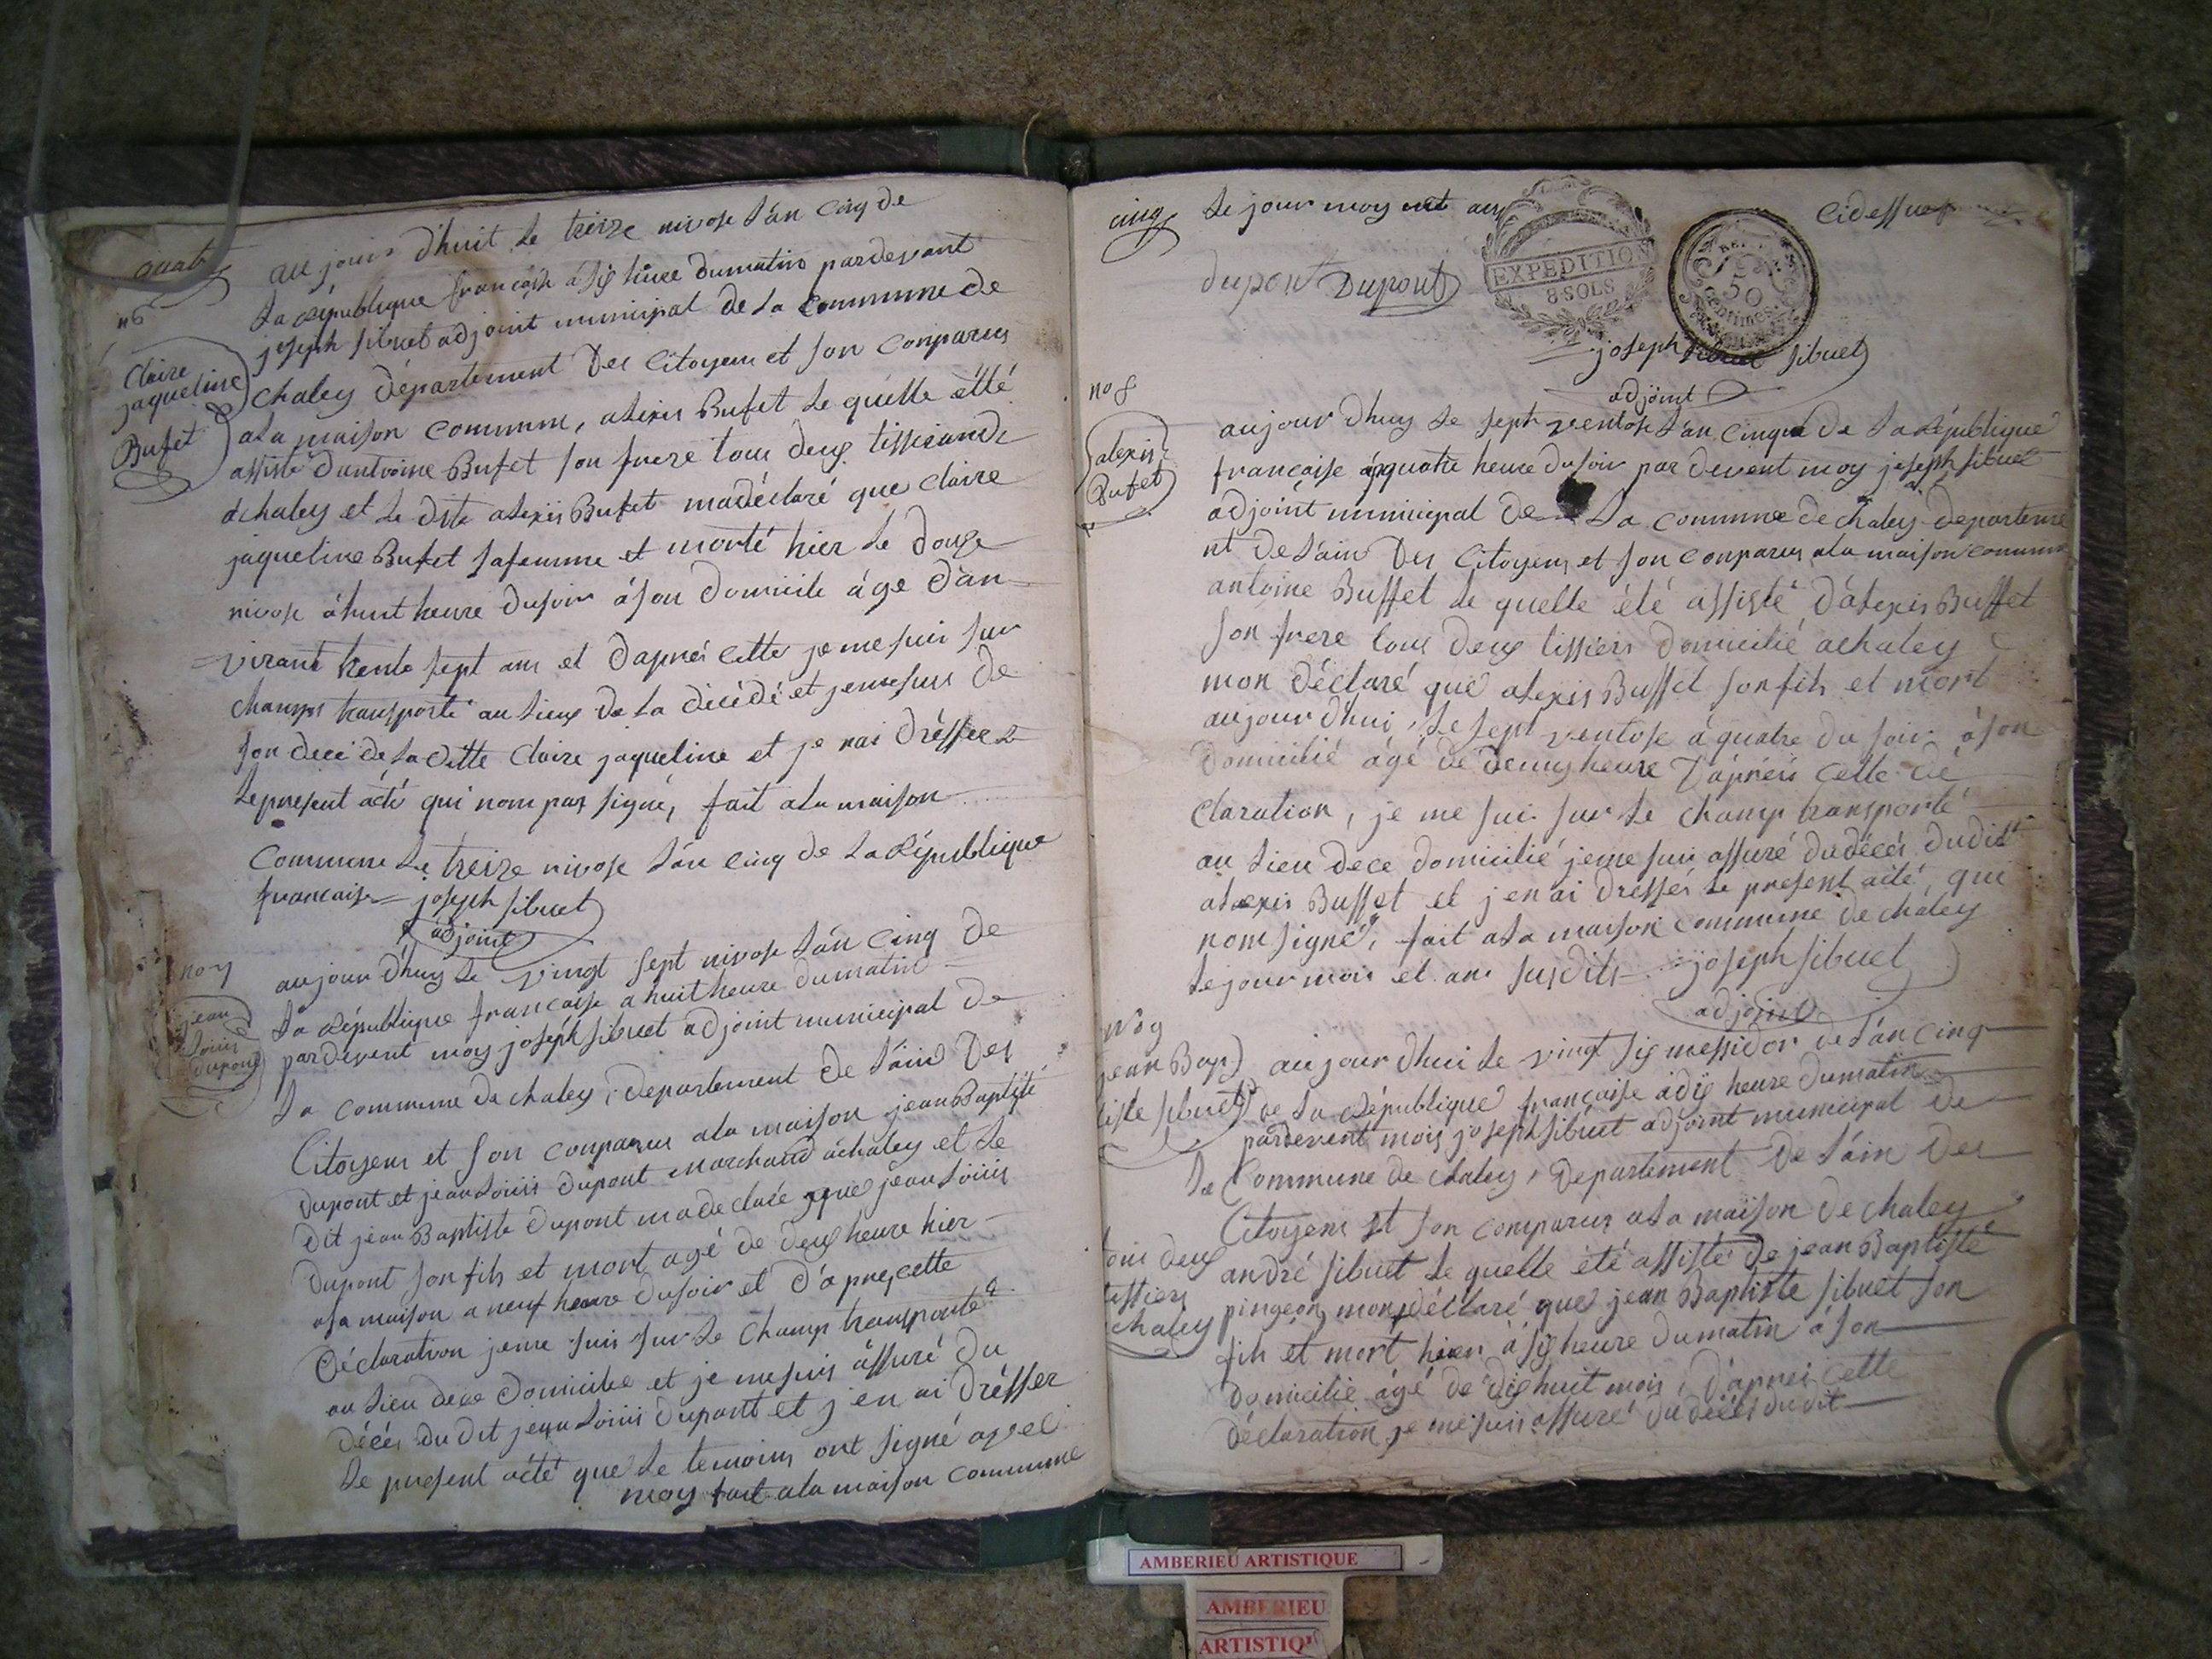 quatr
au jour d'huit le treize nivose l'an cinq de
la république francaise a six heure dumatin pardevant
joseph sibuet adjoint municipal de la commune de
chaley département Des Citoyens et son conparus
ala maison commune, alexis Bufet le quélle été
assisté d'antvoine Bufet son frere tous deux tisserands
achaley et le dite alexis Bufet madéclaré que claire
jaqueline Bufet safemme et morté hier le douze
nivose à huit heure dusoir à son domicile âge d'an
viront trente sept ans et d'aprés cette je me suis sur
champs transporté au lieux de la décédé et jemesuis de
son decé de la ditte Claire jaqueline et je nai dresser
le present acté qui nom pas signé, fait ala maison
commune le treize nivose l'an cinq de la République
francaise joseph sibuet
adjoint
n6
Claire
jaqueline
Bufet
no 7
jean
Louis
dupont
aujour d'huy le vingt sept nivose l'an cinq de
la République francaise a huit heure dumatin
pardevent moy joséph sibuet adjoint municipal de
la commune de chaley, departement de l'ain Des
Citoyens et son conparus ala maison jean Baptisté
dupont et jean Louis dupont marchand àchaley et le
dit jean Baptiste dupont ma declaré que jean Louis
dupont son fils et mort agé de deux heure hier
asa maison a neuf heure dusoir et d'apres cette
déclaration jeme suis sur le champ transporté
au lieu dece domicilee et je mesuis assuré du
décés du dit jean Louis dupont et j'en ai drésser
le present acté que le temoins ont signé avec
moy fait ala maison commune
cinq
le jour moy et an
cidessus
EXPEDITION
8 SOLS
50
centimes
dupont Dupont
joseph sibuet sibuet
adjoint
no 8
alexis
Bufet
aujour dhuy le sept ventose l'an cinque de la République
francaise à quatre heure dusoir par devent moy joseph sibuet
adjoint municipal de la commune de chaley departeme
nt de l'ain Des Citoyens et son conparus ala maison commune
antoine Buffet le quelle été assisté d'alexis Buffet
son frere tous deux tissiers domicilié achaley
mon déclaré que alexis Buffet son fils et mort
aujour d'hui, le sept ventose à quatre du soir à son
domicilié âgé de demy heure D'aprés cette dé
claration, je me suis sur le champ transporté
au lieu dece domicilié jeme suis assuré dudécés dudit
alexis Buffet et j'en ai dressés le present acté, que
nom signé, fait ala maison commune de chaley
le jour mois et an susdits joseph sibuet
adjoint
No 9
jean Bap
tiste sibuet
aujour dhui le vingt six messidor de l'an cinq
de la République francaise à dix heure dumatin
pardevent mois joseph sibuet adjoint municipal de
la Commune de chaley, departement de l'ain Des
Citoyens et son comparus ala maison de chaley
andré sibuet le quelle été assisté de jean Baptisté
pingeon, mon déclaré que jean Baptiste sibuet son
fils et mort hier à six heure dumatin à son
domicilié âgé de dix huit mois, d'aprés cette
déclaration je me suis assuré du décés dudit
tous deux
tissiers
achaley
AMBERIEU ARTISTIQUE
AMBERIEU
ARTISTIQU